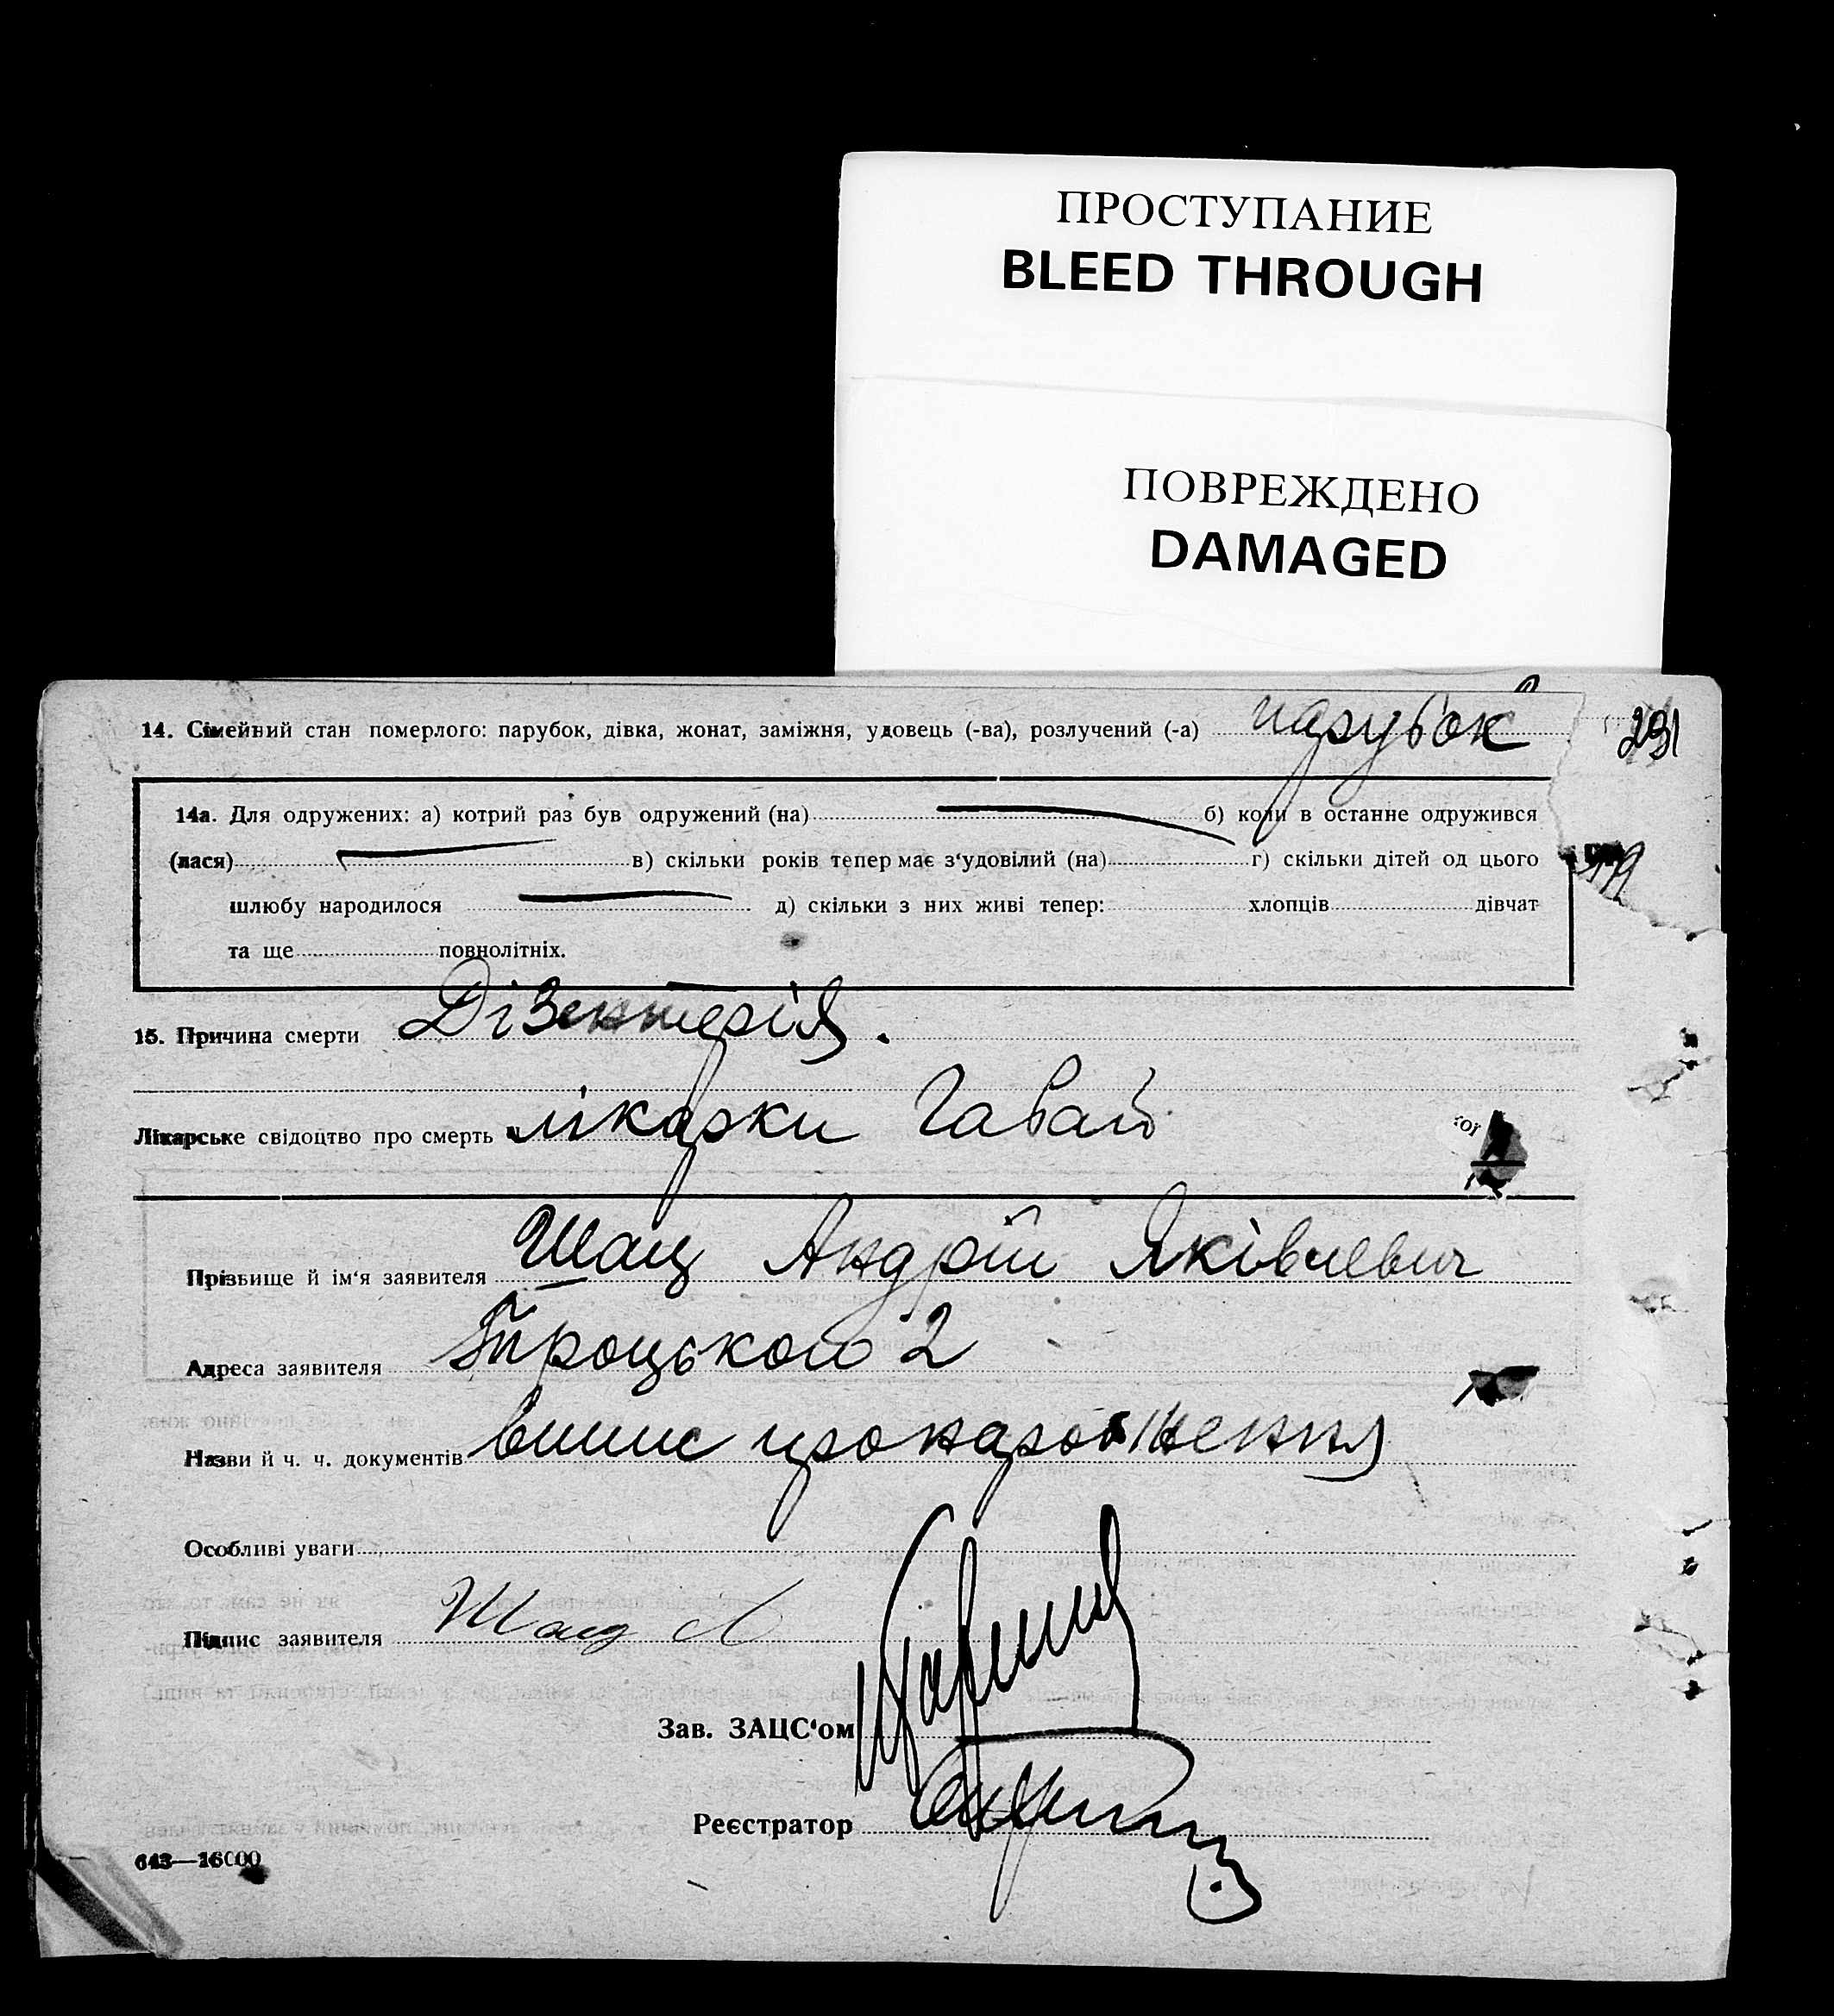 ПРОСТУПАНИЕ
BLEED THROUGH
ПОВРЕЖДЕНО
DAMAGED
14. Сімейний стан померлого: парубок, дівка, жонат, заміжня, удовець (-ва), розлучений (-а) парубок 291
14а. Для одружених: а) котрий раз був одружений (на) б) коли в останне одружився
(лася) в) скільки років тепер має з‘удовілий (на) г) скільки дітей од цього
шлюбу народилося д) скільки з них живі тепер: хлопців дівчат
та ще повнолітніх.
15. Причина смерти Дізентерія.
Лікарське свідоцтво про смерть лікарки Габай
Прізвище й ім‘я заявителя Шац Андрій Яківлевич
Адреса заявителя Троцького 2
Назви й ч. ч. документів випис про народження
Особливі уваги
Підпис заявителя Шац А
Зав. ЗАЦС‘ом
Реєстратор
643—16000